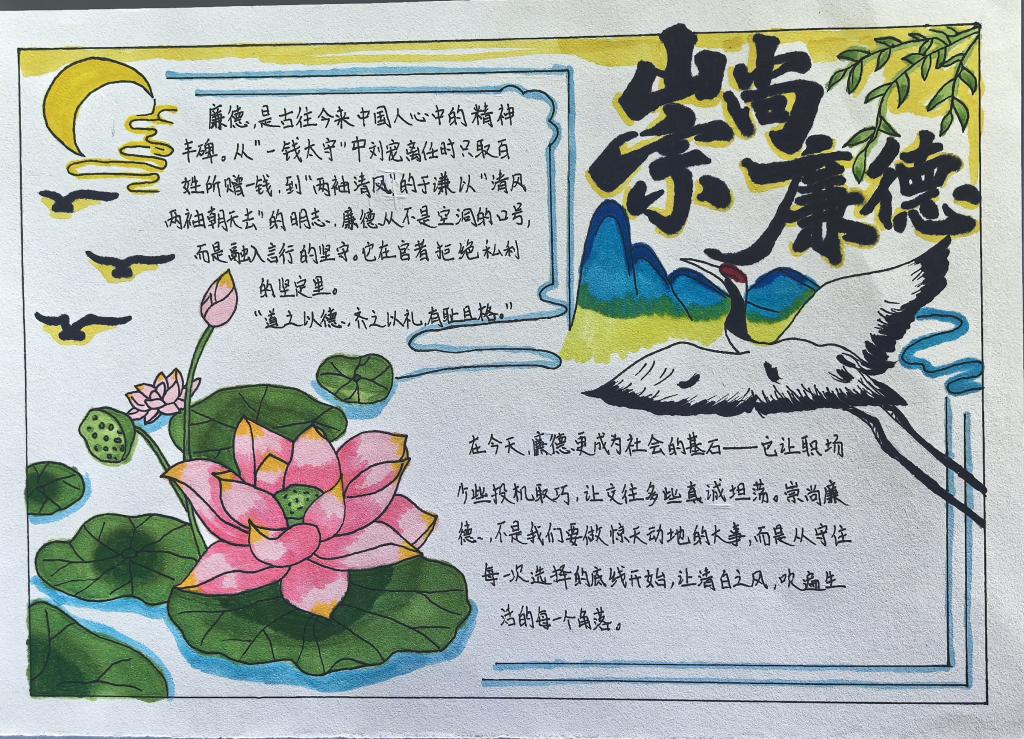 崇尚
廉德
廉德,是古往今来中国人心中的精神
丰碑。从"一钱太守"中刘宠离任时只取百
姓所赠一钱,到"两袖清风"的于谦以"清风
两袖朝天去"的明志、廉德从不是空洞的口号,
而是融入言行的坚守。它在官者拒绝私利
的坚定里。
"道之以德、齐之以礼,有耻且格。"
在今天,廉德更成为社会的基石——它让职场
少些投机取巧,让交往多些真诚坦荡。崇尚廉
德、不是我们要做惊天动地的大事,而是从守住
每一次选择的底线开始,让清白之风,吹遍生
活的每一个角落。